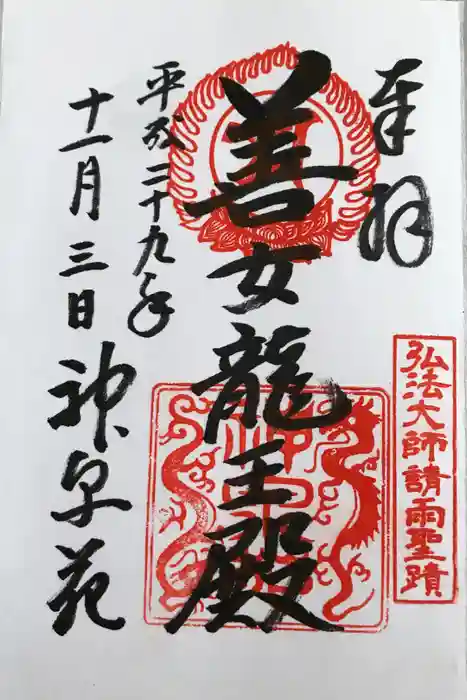 奉拝
弘法大師請雨聖蹟
善女龍王殿
平成二十九年
十一月三日 神泉苑